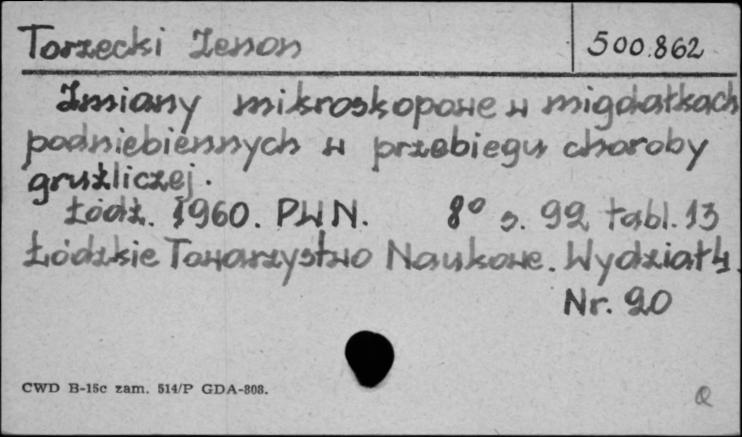 Torzecki Zenon
500.862
Zmiany mikroskopowe w migdałkach
podniebiennych w przebiegu choroby
gruźliczej.
Łódź. 1960. PWN. 8° s. 92 tabl. 13
Łódzkie Towarzystwo Naukowe. Wydział 4.
Nr. 20
CWD B-15c zam. 514/P GDA-808.
Q